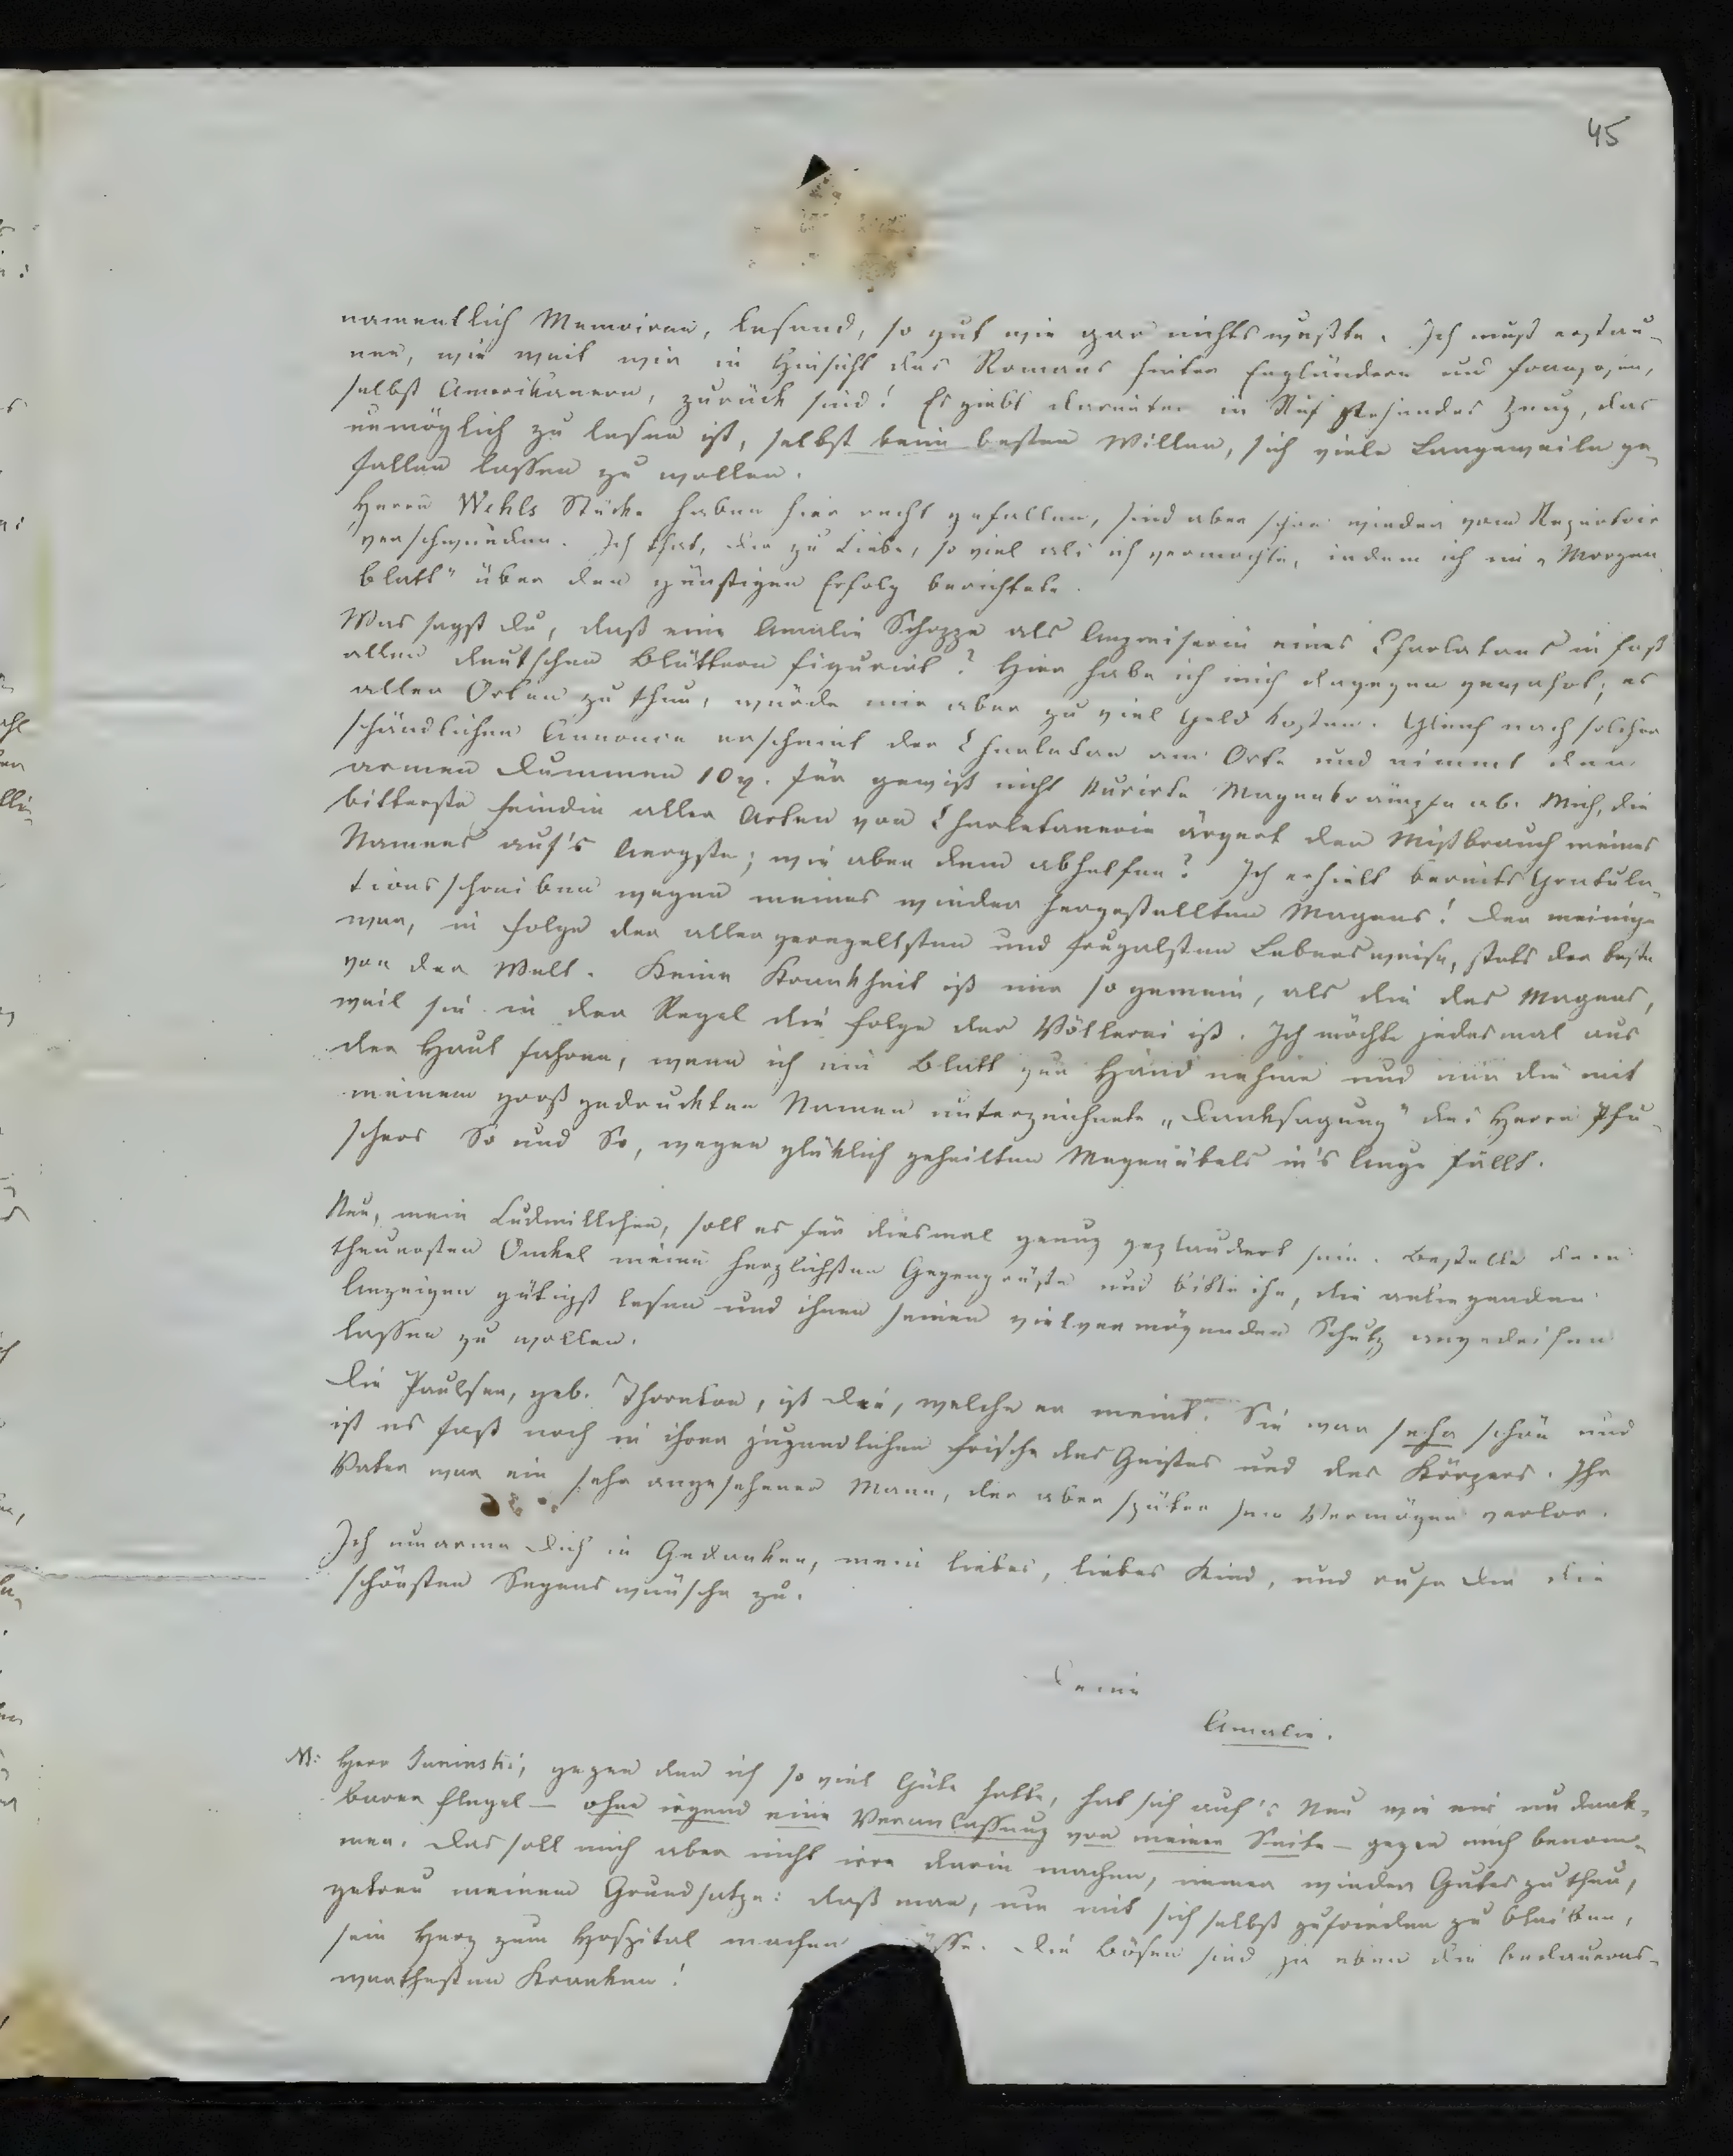 45
namentlich Memoiren, lesend, so gut wie gar nichts wußte. Ich muß erstau-
nen, wie weit wir in Hinsicht des Romans hinter Engländern und Franzosen,
selbst Amerikanern, zurück sind! Es giebt darunter in Ruf stehendes Zeug, das
unmöglich zu lesen ist, selbst beim besten Willen, sich viele Langeweile ge-
fallen lassen zu wollen.
Herrn Wehls Stücke haben hier recht gefallen, sind aber schon wieder vom Repertoir
verschwunden. Ich that, dir zu Liebe, so viel als ich vermochte, indem ich im „Morgen-
blatt" über den günstigen Erfolg berichtete.
Was sagst Du, daß eine Amalie Schoppe als Anpreiserin eines Charlatans in fast
allen deutschen Blättern figurirt? Hier habe ich mich dagegen gewahrt; es
aller Orten zu thun, würde mir aber zu viel Geld kosten. Gleich nach solcher
schändlichen Annonce erscheint der Charlatan am Orte und nimmt den
armen Dummen 10 für gewiß nicht kurirte Magenkrämpfe ab. Mich, die
bitterste Feindin aller Arten von Charlatanerie ärgert der Mißbrauch meines
Namens auf's Aergste; wie aber dem abhelfen? Ich erhielt bereits Gratula-
tionsschreiben wegen meines wieder hergestellten Magens! Der meinige
war, in Folge der aller geregeltsten und frugalsten Lebensweise, stets der beste
von der Welt. Keine Krankheit ist mir so gemein, als die des Magens,
weil sie in der Regel die Folge der Völlerei ist. Ich möchte jedesmal aus
der Haut fahren, wenn ich ein Blatt zur Hand nehme und mir die mit
meinem groß gedruckten Namen unterzeichnete „Danksagung" des Herrn Pfu-
schers So und So, wegen glüklich geheilten Magenübels in's Auge fällt.
Nun, mein Ludmillchen, soll es für diesmal genug geplaudert sein. Bestelle dem
theuersten Onkel meine herzlichsten Gegengrüße und bitte ihn, die anliegenden
Anzeigen gütigst lesen und ihnen seinen vielvermögenden Schutz angedeihen
lassen zu wollen.
Die Paulsen, geb. Thornton, ist die, welche er meint. Sie war sehr schön und
ist es fast noch in ihrer jugendlichen Frische des Geistes und des Körpers. Ihr
Vater war ein sehr angesehener Mann, der aber später sein Vermögen verlor.
Ich umarme Dich in Gedanken, mein liebes, liebes Kind, und rufe dir die
schönsten Segenswünsche zu.
Deine
Amalie.
NB: Herr gegen den ich so viel Güte hatte, hat sich auf's Neu wie ein undank-
barer Flegel — ohne irgend eine Veranlassung von meiner Seite — gegen mich benom-
men. Das soll mich aber nicht irre darin machen, immer wieder Gutes zu thun,
getreu meinem Grundsatze: daß man, um mit sich selbst zufrieden zu bleiben,
sein Herz zum Hospital machen müsse. Die Bösen sind ja eben die bedauerns-
werthesten Kranken!